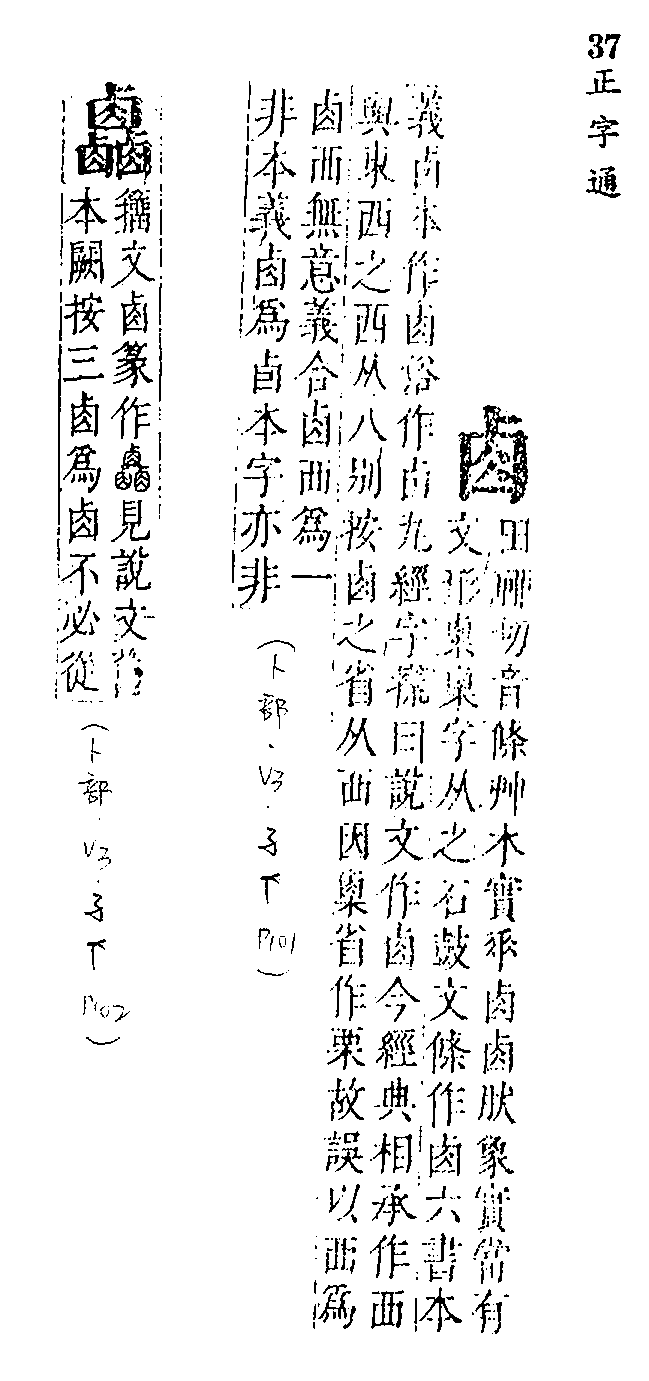 37 正字通
卤
田聊切音條艸木實垂卤卤肰象實當有
文形㮚㮚字从之石鼓文條作卤六書本
義卣本作卤俗作卣九經字㨾曰說文作卤今經典相承作覀
與東西之西从八别按卤之省从覀因㮚省作栗故誤以覀爲
卤覀無意義合卤覀爲一
非本義卤爲卣本字亦非
(卜部.V3.子下P101)
𠧪
籒文卤篆作𠧪見說文
本闕按三卤爲卤不必從
(卜部.V3.子下P102)